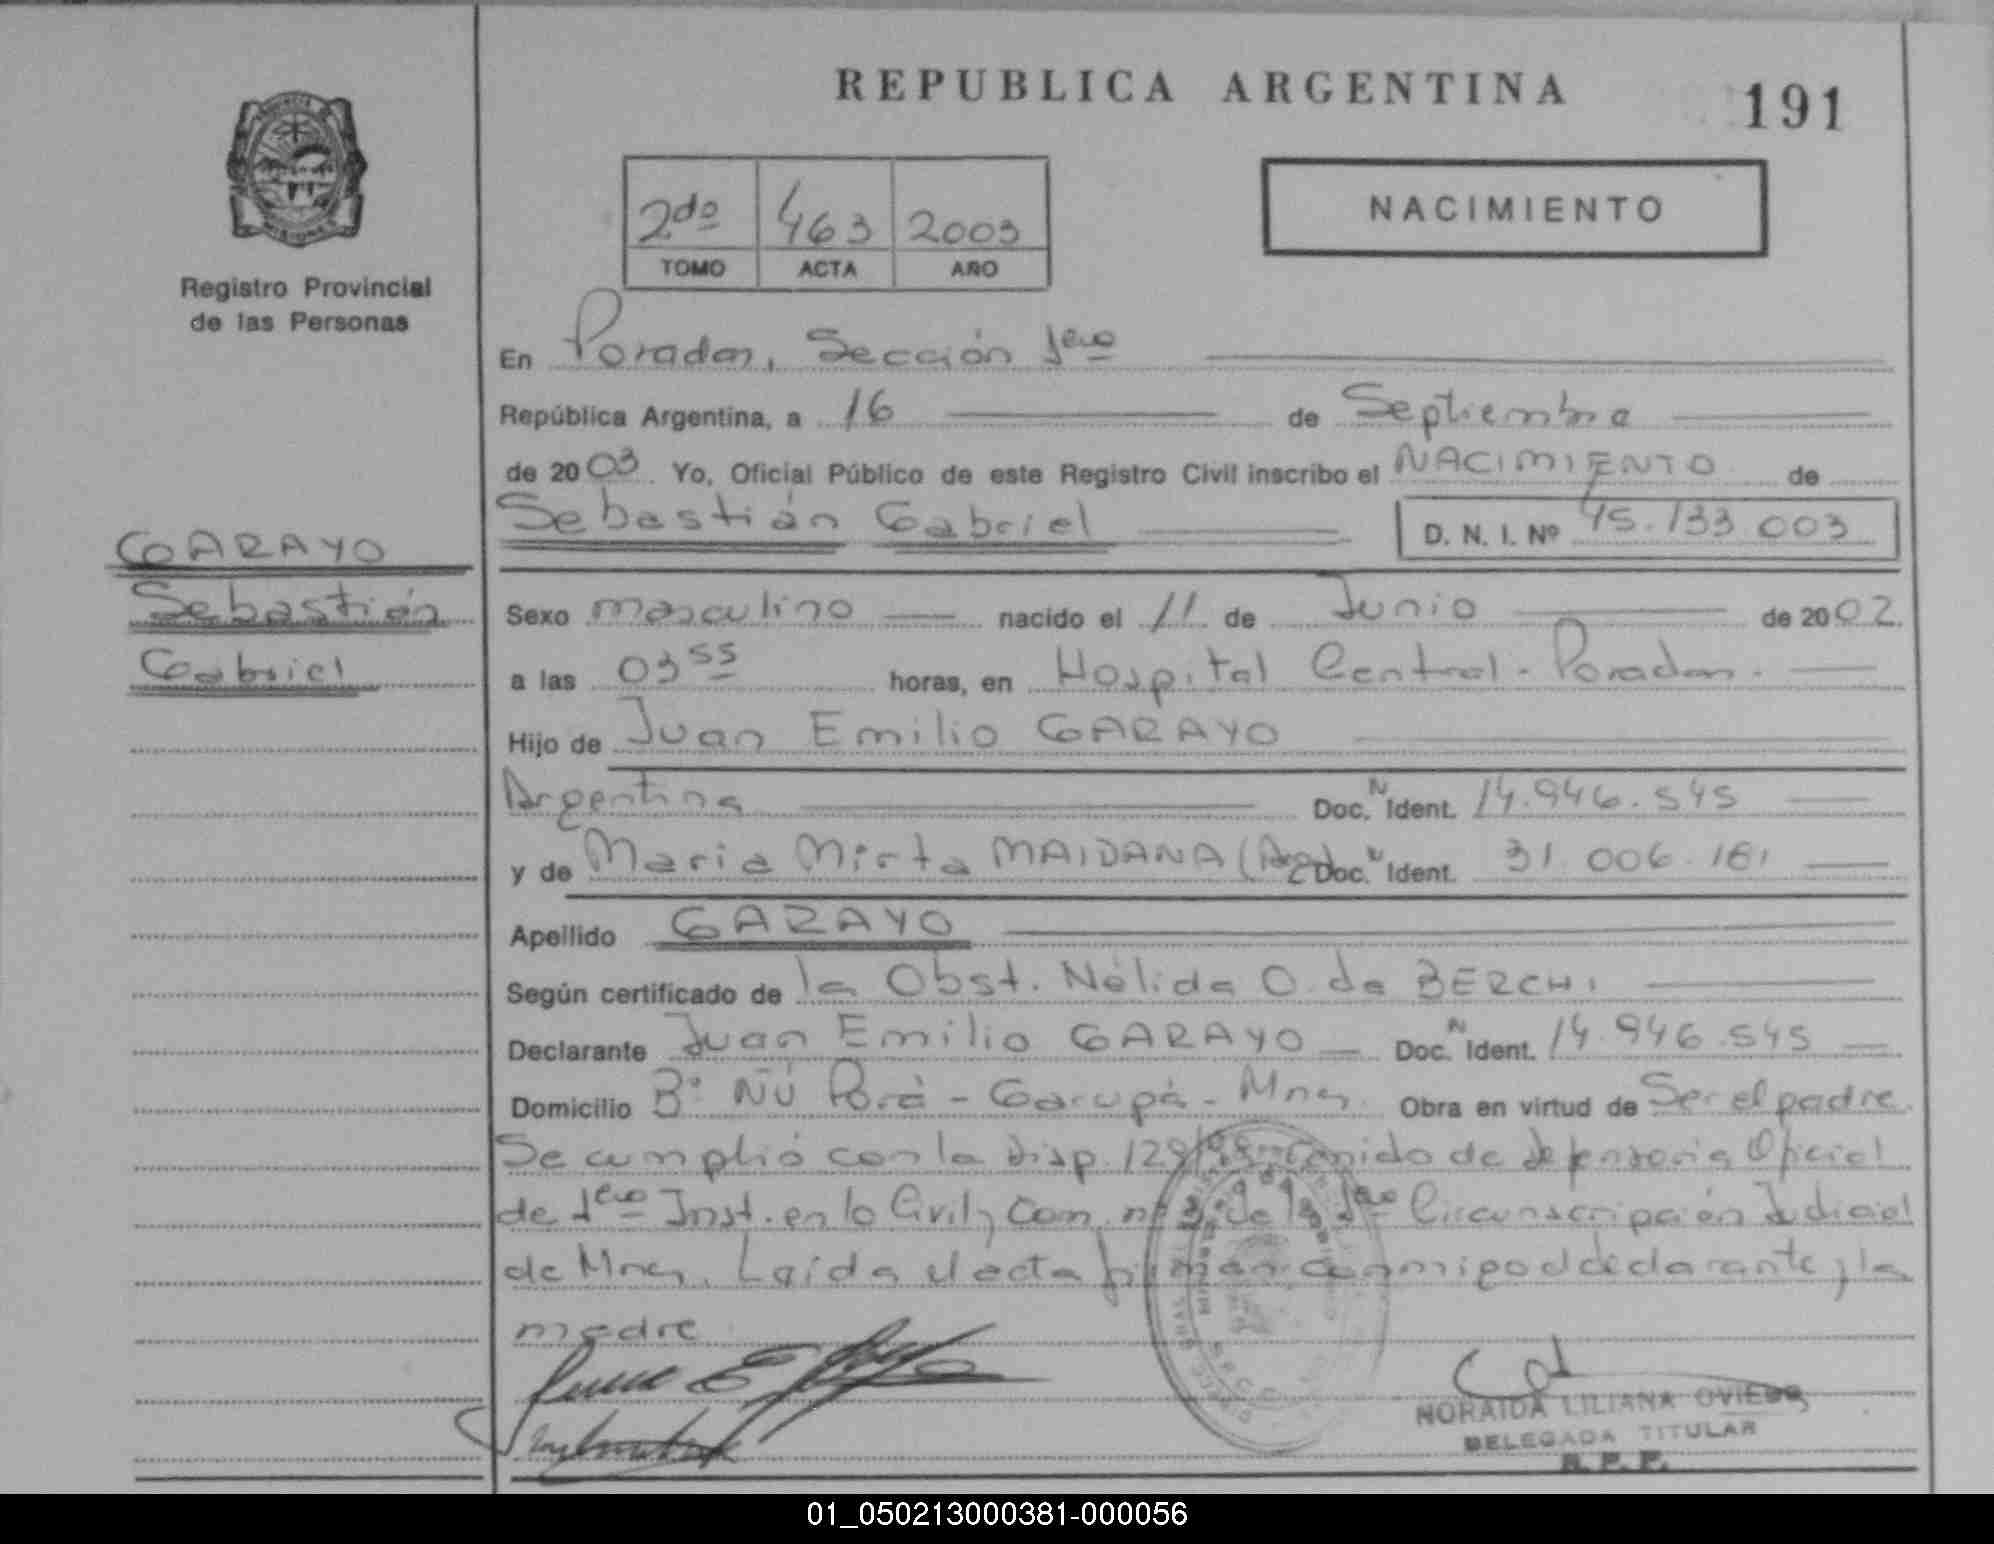 REPUBLICA ARGENTINA
191
NACIMIENTO
2do 463 2003
TOMO ACTA AÑO
MISIONES
Registro Provincial
de las Personas
En Posadas, Sección 1era
República Argentina, a 16 de Septiembre
de 2003 Yo, Oficial Público de este Registro Civil inscribo el NACIMIENTO de
Sebastián Gabriel D. N. I. Nº 45.133.003
GARAYO
Sebastián
Gabriel
Sexo masculino nacido el 11 de Junio de 2002.
a las 03 55 horas, en Hospital Central - Posadas.
Hijo de Juan Emilio GARAYO
Argentina Doc. N Ident. 14.946.545
y de Maria Mirta MAIDANA (Arg) Doc. N Ident. 31.006.161
Apellido GARAYO
Según certificado de la Obst. Nélida O. de BERCHI
Declarante Juan Emilio GARAYO Doc. N Ident. 14.946.545
Domicilio Bº ÑU Porá - Garupá - Mnes. Obra en virtud de Ser el padre
Se cumplió con la Disp. 129/98 de Defensoria Oficial
de 1era Inst. en lo Civil y Com. nº 3 de la 1era Circunscripción Judicial
de Mnes. Leída el acta firman conmigo el declarante y la
madre
NORAIDA LILIANA OVIEDO
DELEGADA TITULAR
R. P. P.
01_050213000381-000056